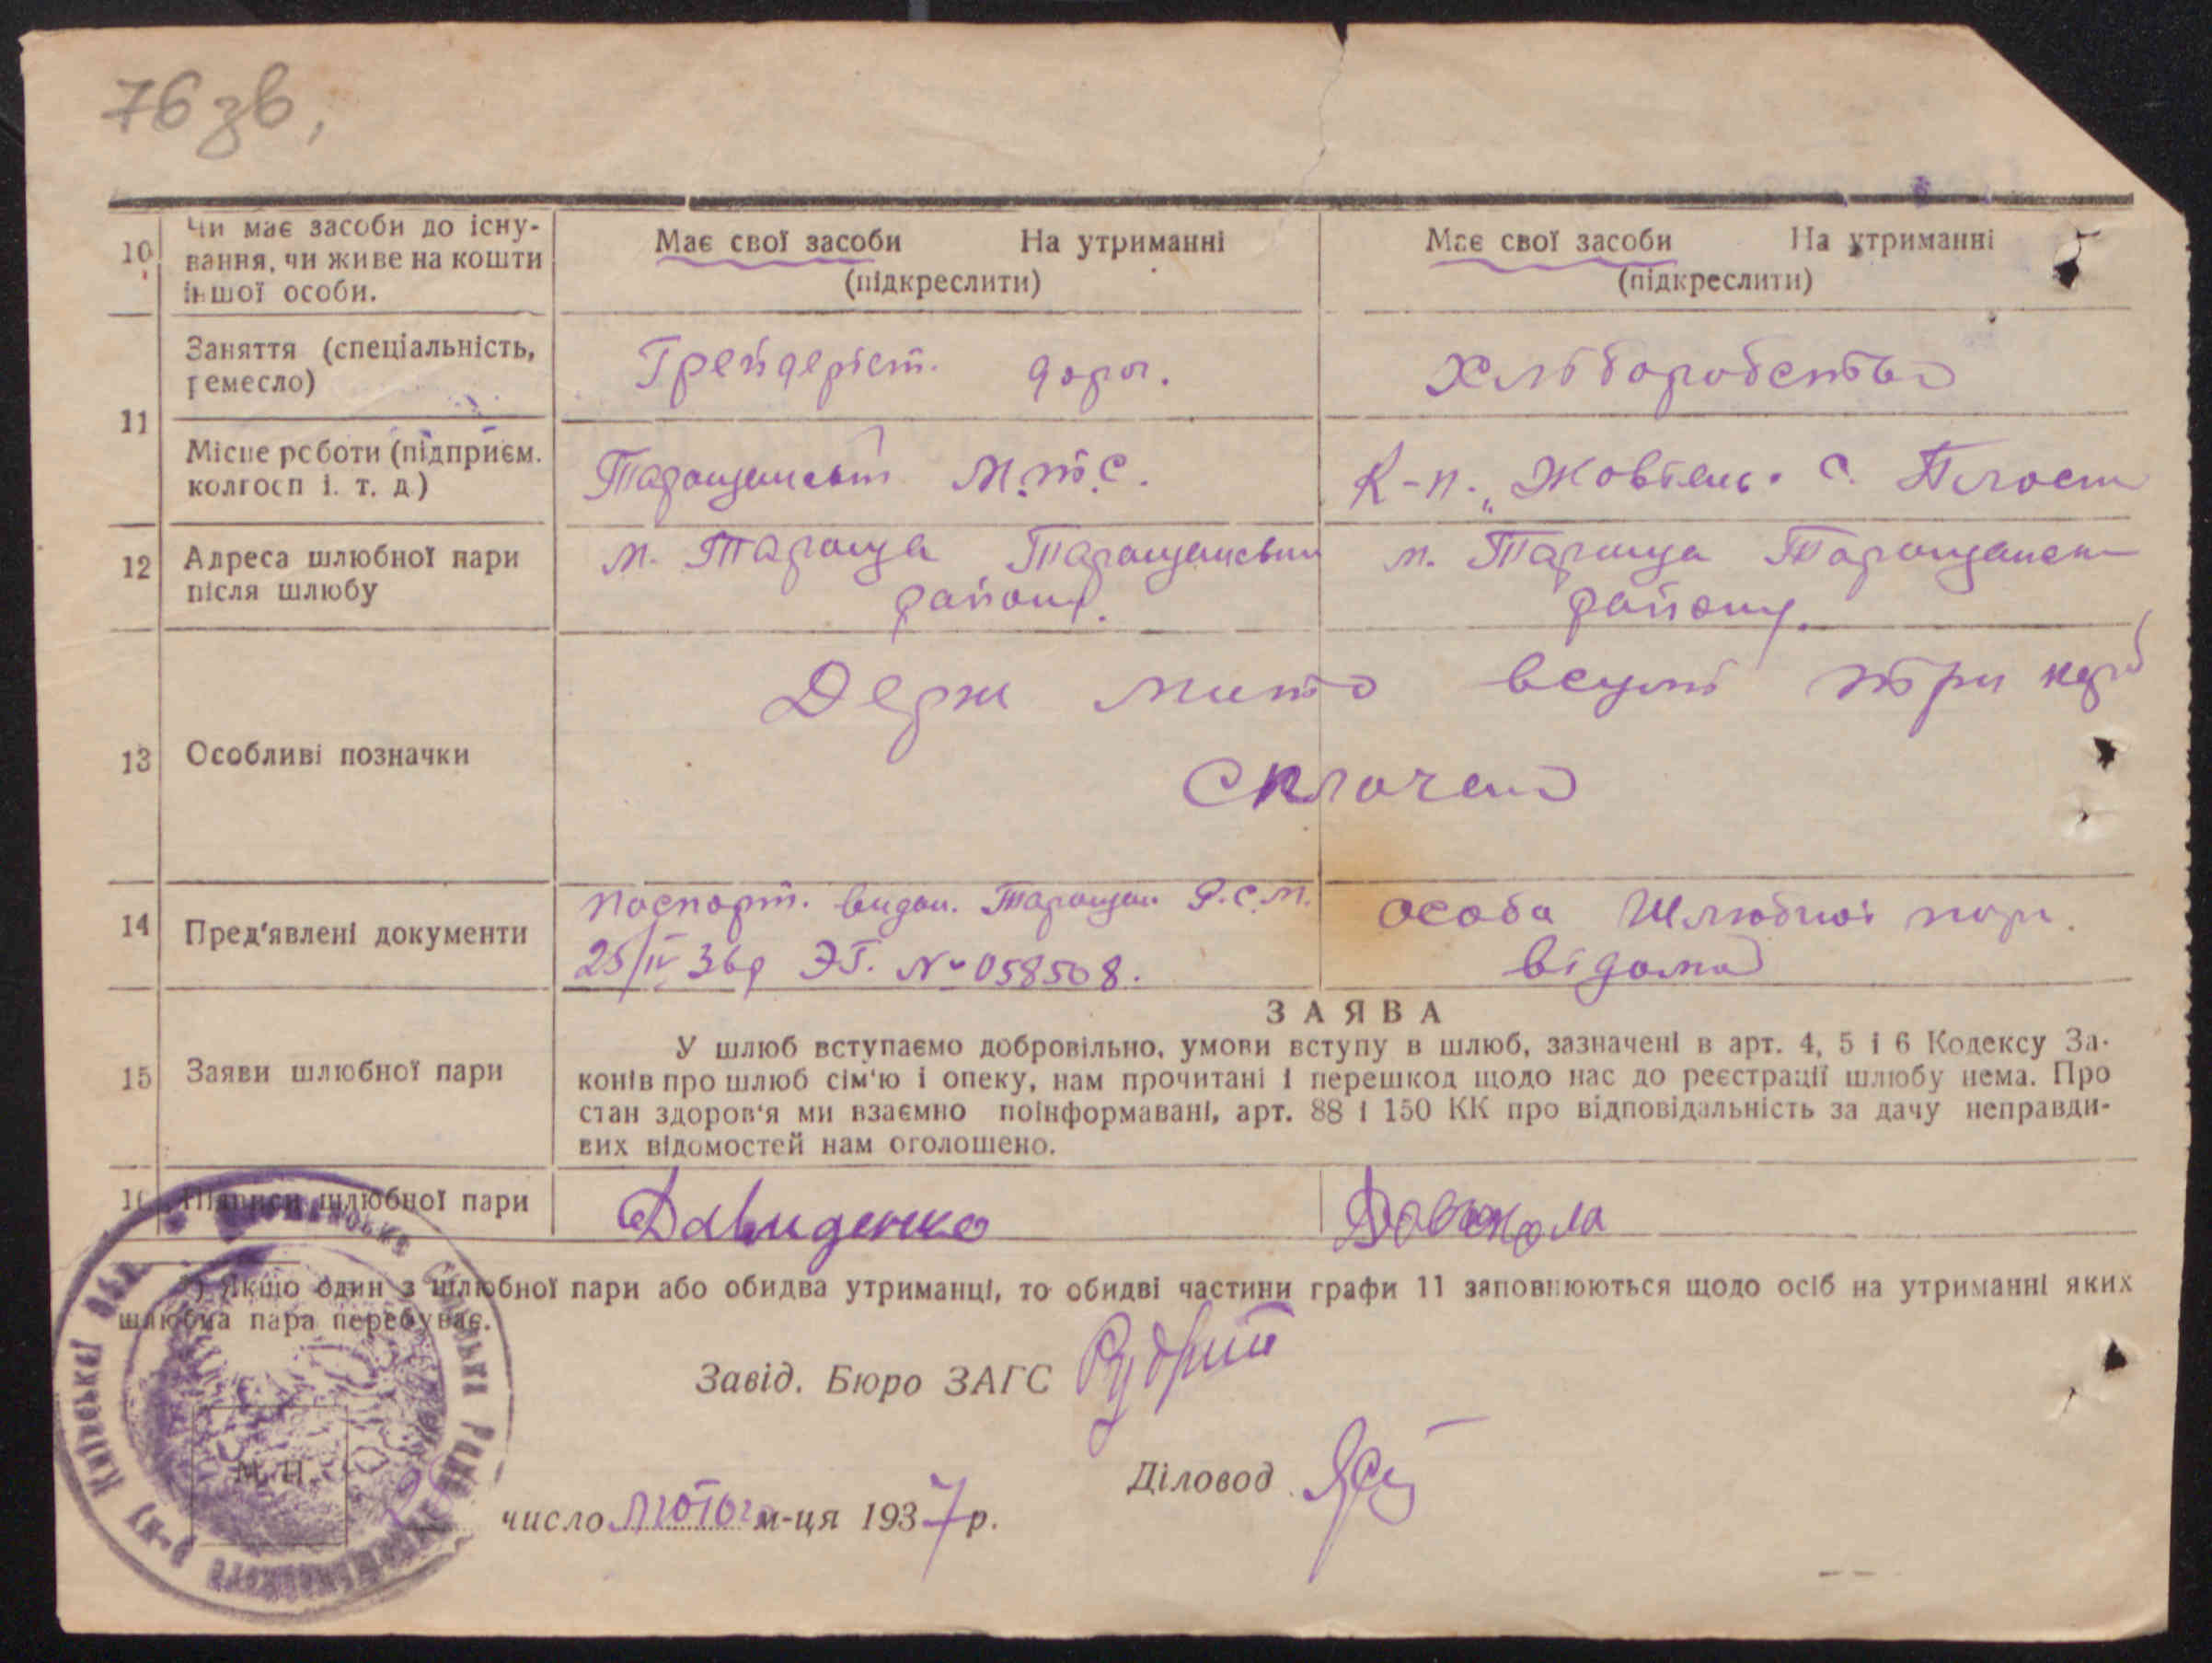 76 зв,
10 Чи має засоби до існу-
вання, чи живе на кошти
іншої особи.
Має свої засоби На утриманні
(підкреслити)
Має свої засоби На утриманні
(підкреслити)
11 Заняття (спеціальність,
ремесло)
Грейдеріст. дорог.
Хліборобство
Місце роботи (підприєм.
колгосп і. т. д.)
Таращанськ М.т.С.
К-п. „Жовтень" с. Плоск
12 Адреса шлюбної пари
після шлюбу
м. Тараща Таращанськ
району.
м. Тараща Таращанськ
району.
13 Особливі позначки
Держ мито в сумі три крб
Сплачено
14 Пред'явлені документи
Паспорт. видан. Таращан Р.С.М.
25/IV 36р ЭГ. № 058508.
особа Шлюбної пари.
відома
15 Заяви шлюбної пари
ЗАЯВА
У шлюб вступаємо добровільно, умови вступу в шлюб, зазначені в арт. 4, 5 і 6 Кодексу За-
конів про шлюб сім'ю і опеку, нам прочитані і перешкод щодо нас до реєстрації шлюбу нема. Про
стан здоров'я ми взаємно поінформавані, арт. 88 і 150 КК про відповідальність за дачу неправди-
вих відомостей нам оголошено.
16 Підписи шлюбної пари
Давиденко
*) Якщо один з шлюбної пари або обидва утриманці, то обидві частини графи 11 заповнюються щодо осіб на утриманні яких
шлюбна пара перебуває.
Завід. Бюро ЗАГС
Діловод
М. П.
число лютог м-ця 1937 р.
Сільська Рада
р-ну Київської обл.